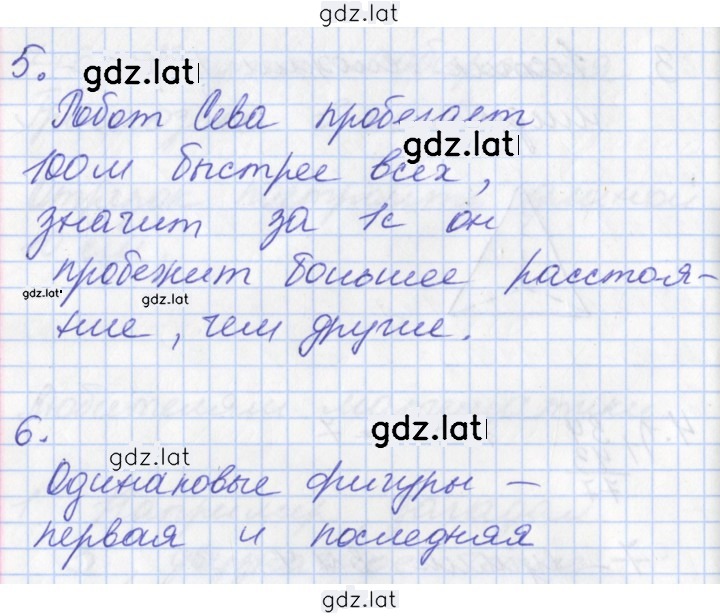 gdz.lat
5.
gdz.lat
Робот Сева пробегает
100м быстрее всех,
gdz.lat
значит за 1с он
пробежит большее расстоя-
gdz.lat
gdz.lat
ние, чем другие.
6.
gdz.lat
gdz.lat
Одинаковые фигуры –
первая и последняя
gdz.lat